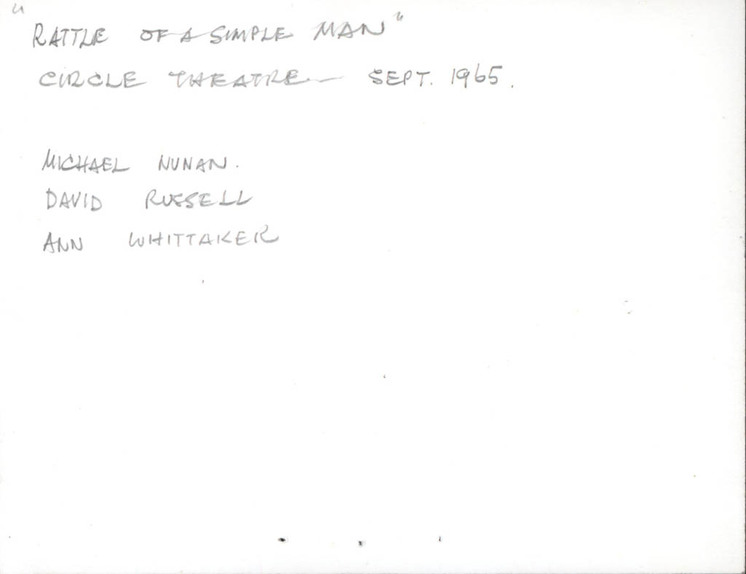 "RATTLE OF A SIMPLE MAN"
CIRCLE THEATRE — SEPT. 1965.
MICHAEL NUNAN.
DAVID RUSSELL
ANN WHITTAKER